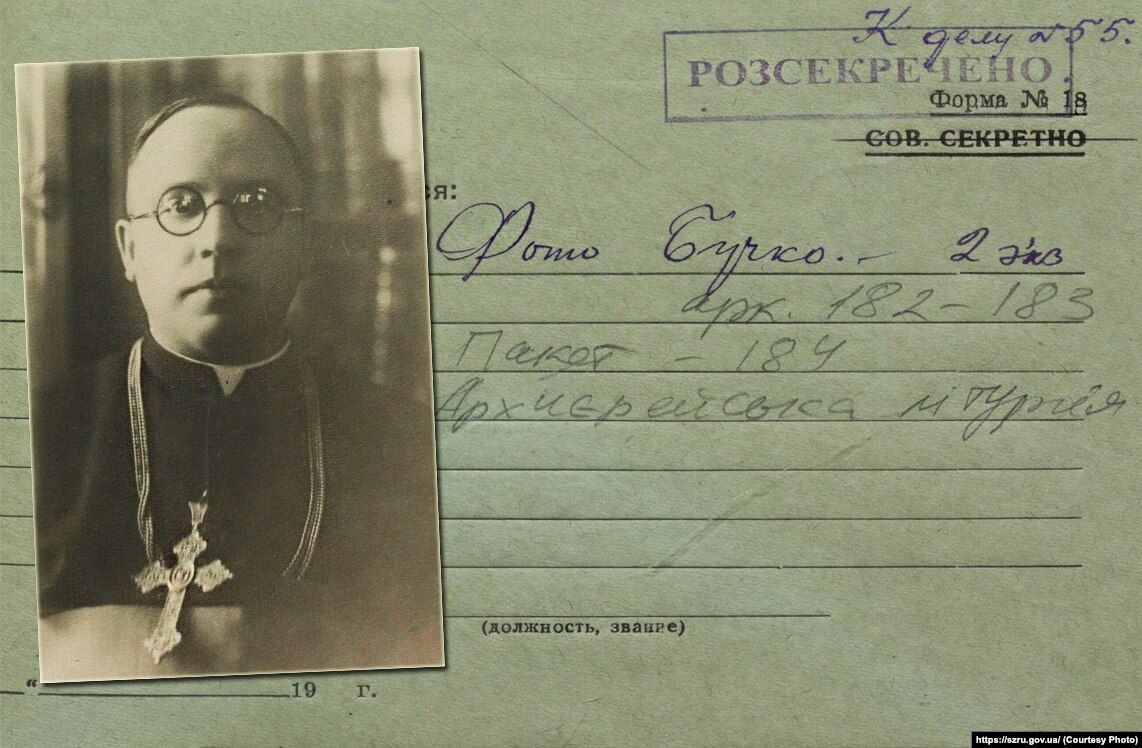 К делу № 55.
РОЗСЕКРЕЧЕНО
Форма № 18
СОВ. СЕКРЕТНО
ся:
Фото Бучко. – 2 экз
арк. 182 – 183
Пакет – 184
Архиєрейська літургія
(должность, звание)
“ 19 г.
https://szru.gov.ua/ (Courtesy Photo)